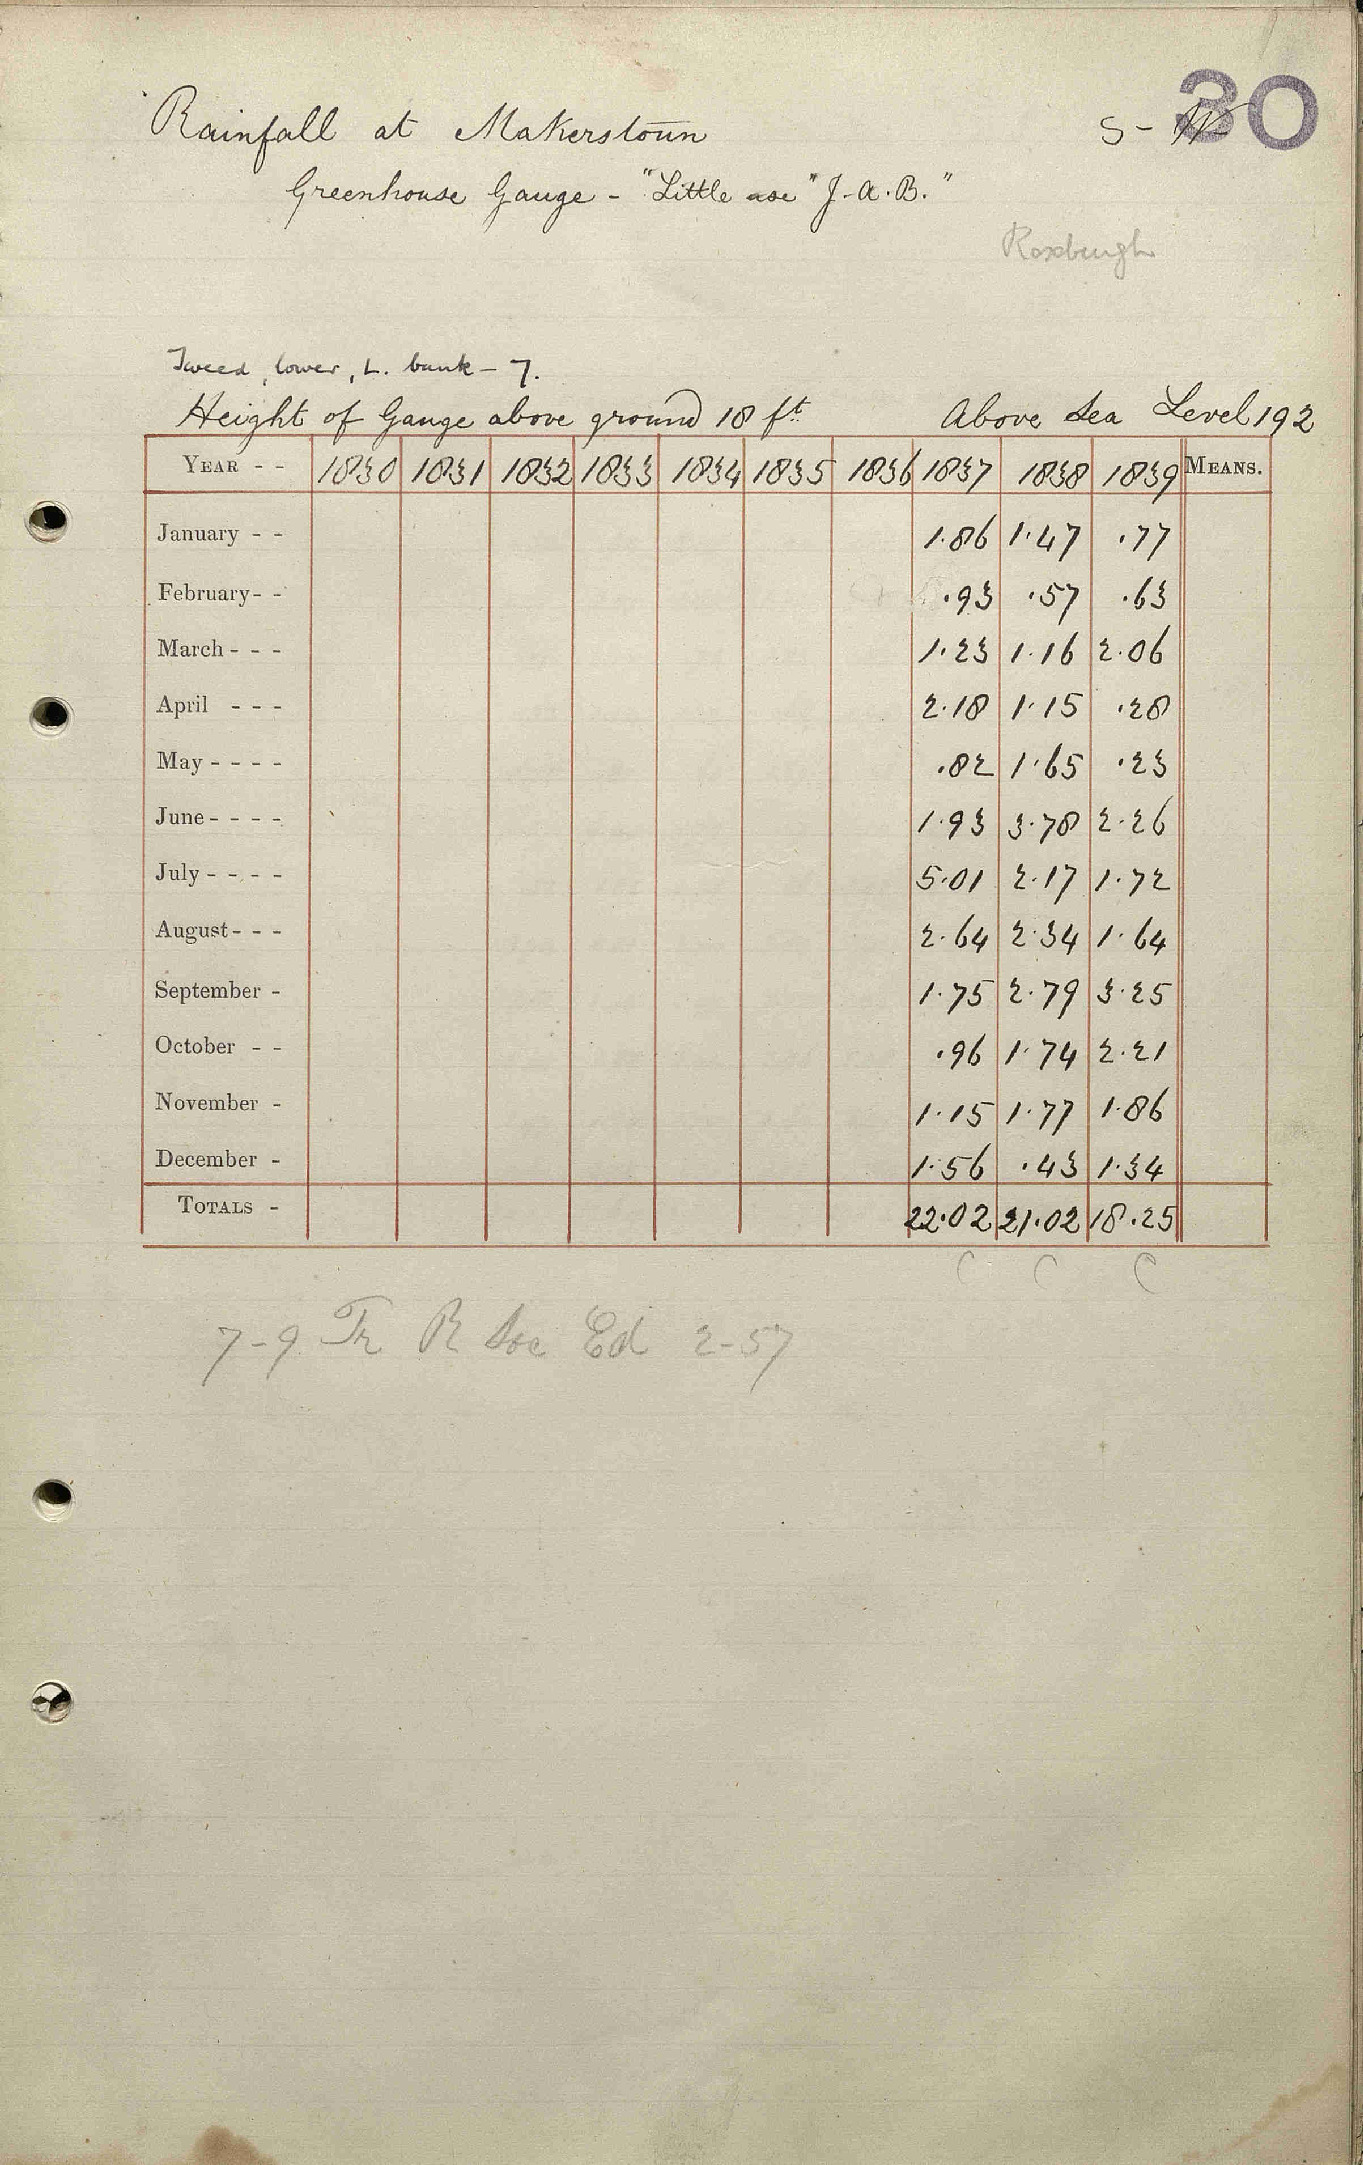 30
Rainfall at Makerstoun S-
Greenhouse Gauge - "Little use" J. A. B."
Roxburgh
Tweed, lower, L. bank - 7.
Height of Gauge above ground 18 ft. Above Sea Level 192
YEAR - - 1830 1831 1832 1833 1834 1835 1836 1837 1838 1839 MEANS.
January - - 1.86 1.47 .77
February - - .93 .57 .63
March - - - 1.23 1.16 2.06
April - - - 2.18 1.15 .28
May - - - - .82 1.65 .23
June - - - - 1.93 3.78 2.26
July - - - - 5.01 2.17 1.72
August - - - 2.64 2.34 1.64
September - 1.75 2.79 3.25
October - - .96 1.74 2.21
November - 1.15 1.77 1.86
December - 1.56 .43 1.34
TOTALS - 22.02 21.02 18.25
C C C
7-9 Tr R Soc Ed 2-57